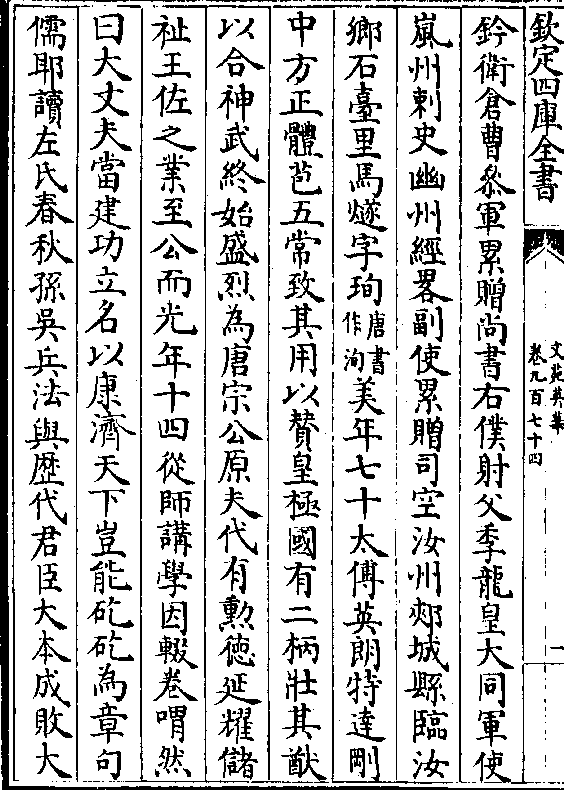 欽定四庫全書
文苑英華
卷九百七十四
一
鈐衛倉曹叅軍累贈尚書右僕射父季龍皇大同軍使
嵐州刺史幽州經畧副使累贈司空汝州郟城縣臨汝
鄉石臺里馬燧字珣唐書作洵美年七十太傅英朗特達剛
中方正體苞五常致其用以贊皇極國有二柄壯其猷
以合神武終始盛烈為唐宗公原夫代有勲徳延耀儲
祉王佐之業至公而光年十四從師講學因輟卷喟然
曰大丈夫當建功立名以康濟天下豈能矻矻為章句
儒耶讀左氏春秋孫吳兵法與歴代君臣大本成敗大